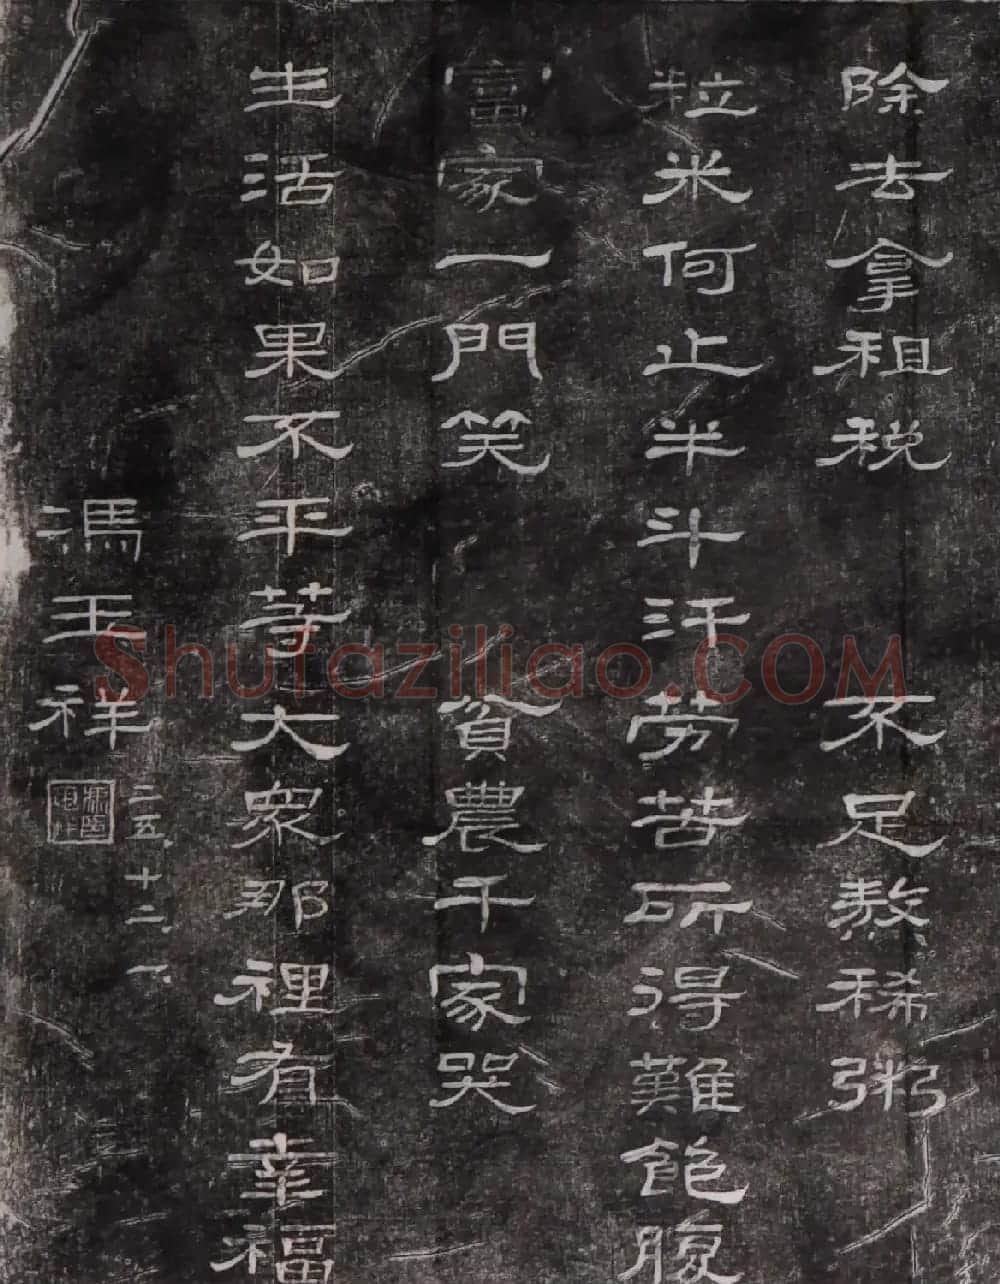 除去拿租税 不足熬稀粥
粒米何止半斗汗 劳苦所得難飽腹
富家一門笑 貧農千家哭
生活如果不平等 大衆那裡有幸福
馮玉祥
二五、十二、一、
Shufaziliao.COM